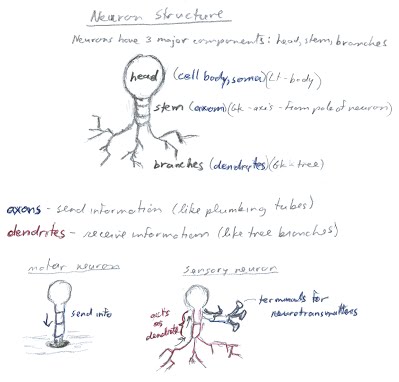 Neuron Structure
Neurons have 3 major components: head, stem, branches
head (cell body, soma) (Lt-body)
stem (axom) (Gk-axis-from pole of neuron)
branches (dendrytes) (Gk-tree)
axons - send information (like plumbing tubes)
dendrites - receive information (like tree branches)
motor neuron
sensory neuron
send info
acts
as
dendrite
terminals for
neurotransmitters